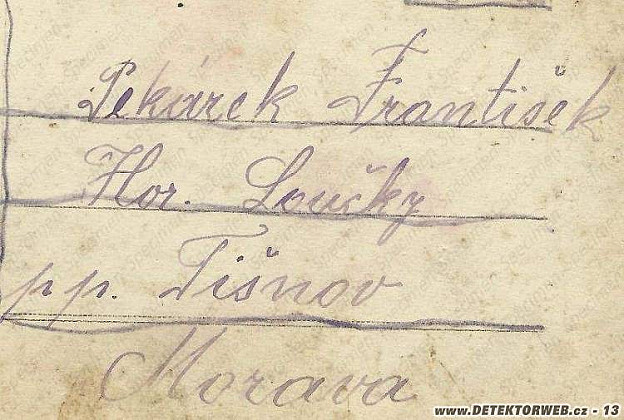 Pekárek František
Hor. Loučky
pp. Tišnov
Morava
WWW.DETEKTORWEB.cz - 13